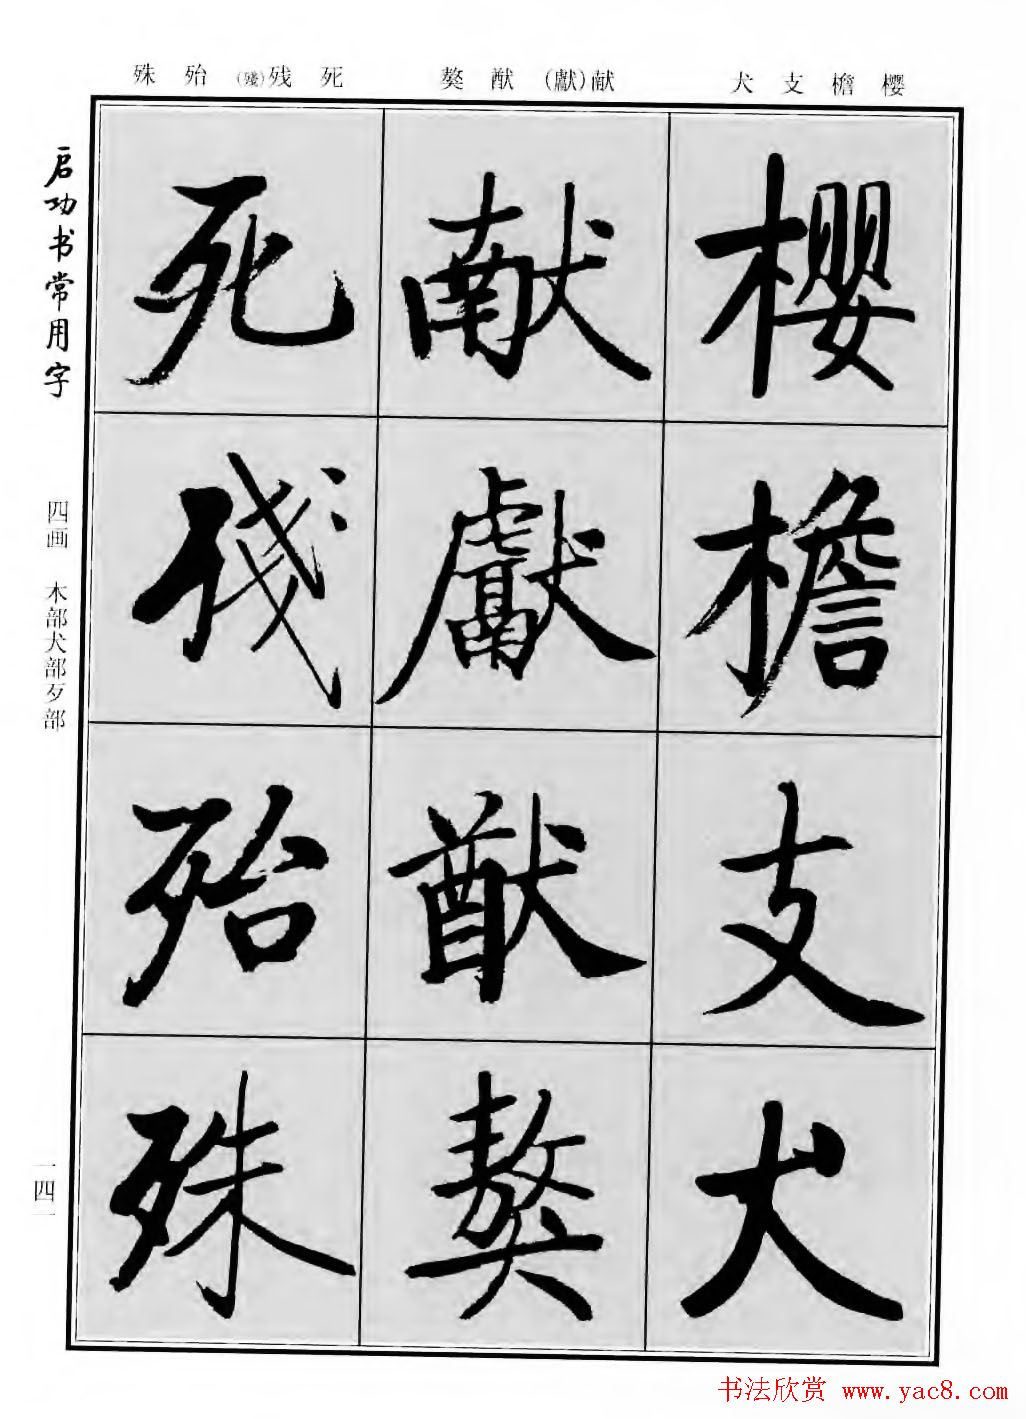 殊 殆 (殘)残 死
獒 猷 (獻)献
犬 支 檐 樱
启功书常用字
四画 木部犬部歹部
一四一
樱
檐
支
犬
献
獻
猷
獒
死
残
殆
殊
书法欣赏 www.yac8.com